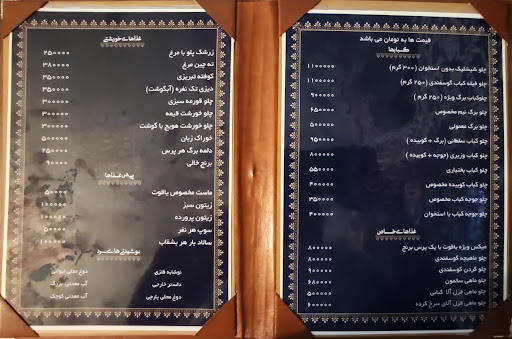 قیمت ها به تومان می باشد
کبابها
چلو شیشلیک بدون استخوان (۳۰۰ گرم) ۱۱۰۰۰۰۰
چلو فیله کباب گوسفندی (۲۵۰ گرم) ۱۱۰۰۰۰۰
چلوکباب برگ ویژه (۲۵۰ گرم) ۹۰۰۰۰۰
چلو کباب برگ نیم مخصوص ۶۵۰۰۰۰
چلو کباب برگ معمولی ۵۰۰۰۰۰
چلو کباب سلطانی (برگ + کوبیده) ۹۵۰۰۰۰
چلو کباب وزیری (جوجه + کوبیده) ۸۰۰۰۰۰
چلو کباب بختیاری ۵۵۰۰۰۰
چلو کباب کوبیده مخصوص ۴۰۰۰۰۰
چلو جوجه کباب مخصوص ۳۵۰۰۰۰
چلو جوجه کباب با استخوان ۴۰۰۰۰۰
غذاهای خاص
میکس ویژه یاقوت با یک پرس برنج ۸۰۰۰۰۰
چلو ماهیچه گوسفندی ۸۰۰۰۰۰
چلو گردن گوسفندی ۹۰۰۰۰۰
چلو ماهی سالمون ۶۸۰۰۰۰
چلو ماهی قزل آلا کبابی ۵۰۰۰۰۰
چلو ماهی قزل آلای سرخ کرده ۶۰۰۰۰۰
غذاهای خورشتی
زرشک پلو با مرغ ۲۵۰۰۰۰
ته چین مرغ ۳۸۰۰۰۰
کوفته تبریزی ۳۵۰۰۰۰
دیزی تک نفره (آبگوشت) ۳۵۰۰۰۰
چلو قورمه سبزی ۳۰۰۰۰۰
چلو خورشت قیمه ۳۰۰۰۰۰
چلو خورشت هویج با گوشت ۳۰۰۰۰۰
خوراک زبان ۵۰۰۰۰۰
دلمه برگ هر پرس ۲۵۰۰۰۰
برنج خالی ۹۰۰۰۰
پیش غذاها
ماست مخصوص یاقوت ۵۰۰۰۰
زیتون سبز ۱۰۰۰۰۰
زیتون پرورده ۱۰۰۰۰۰
سوپ هر نفر ۵۰۰۰۰
سالاد بار هر بشقاب ۱۰۰۰۰۰
نوشیدنی های سرد
نوشابه فلزی
دلستر خارجی
دوغ محلی پارچی
دوغ محلی لیوانی
آب معدنی بزرگ
آب معدنی کوچک